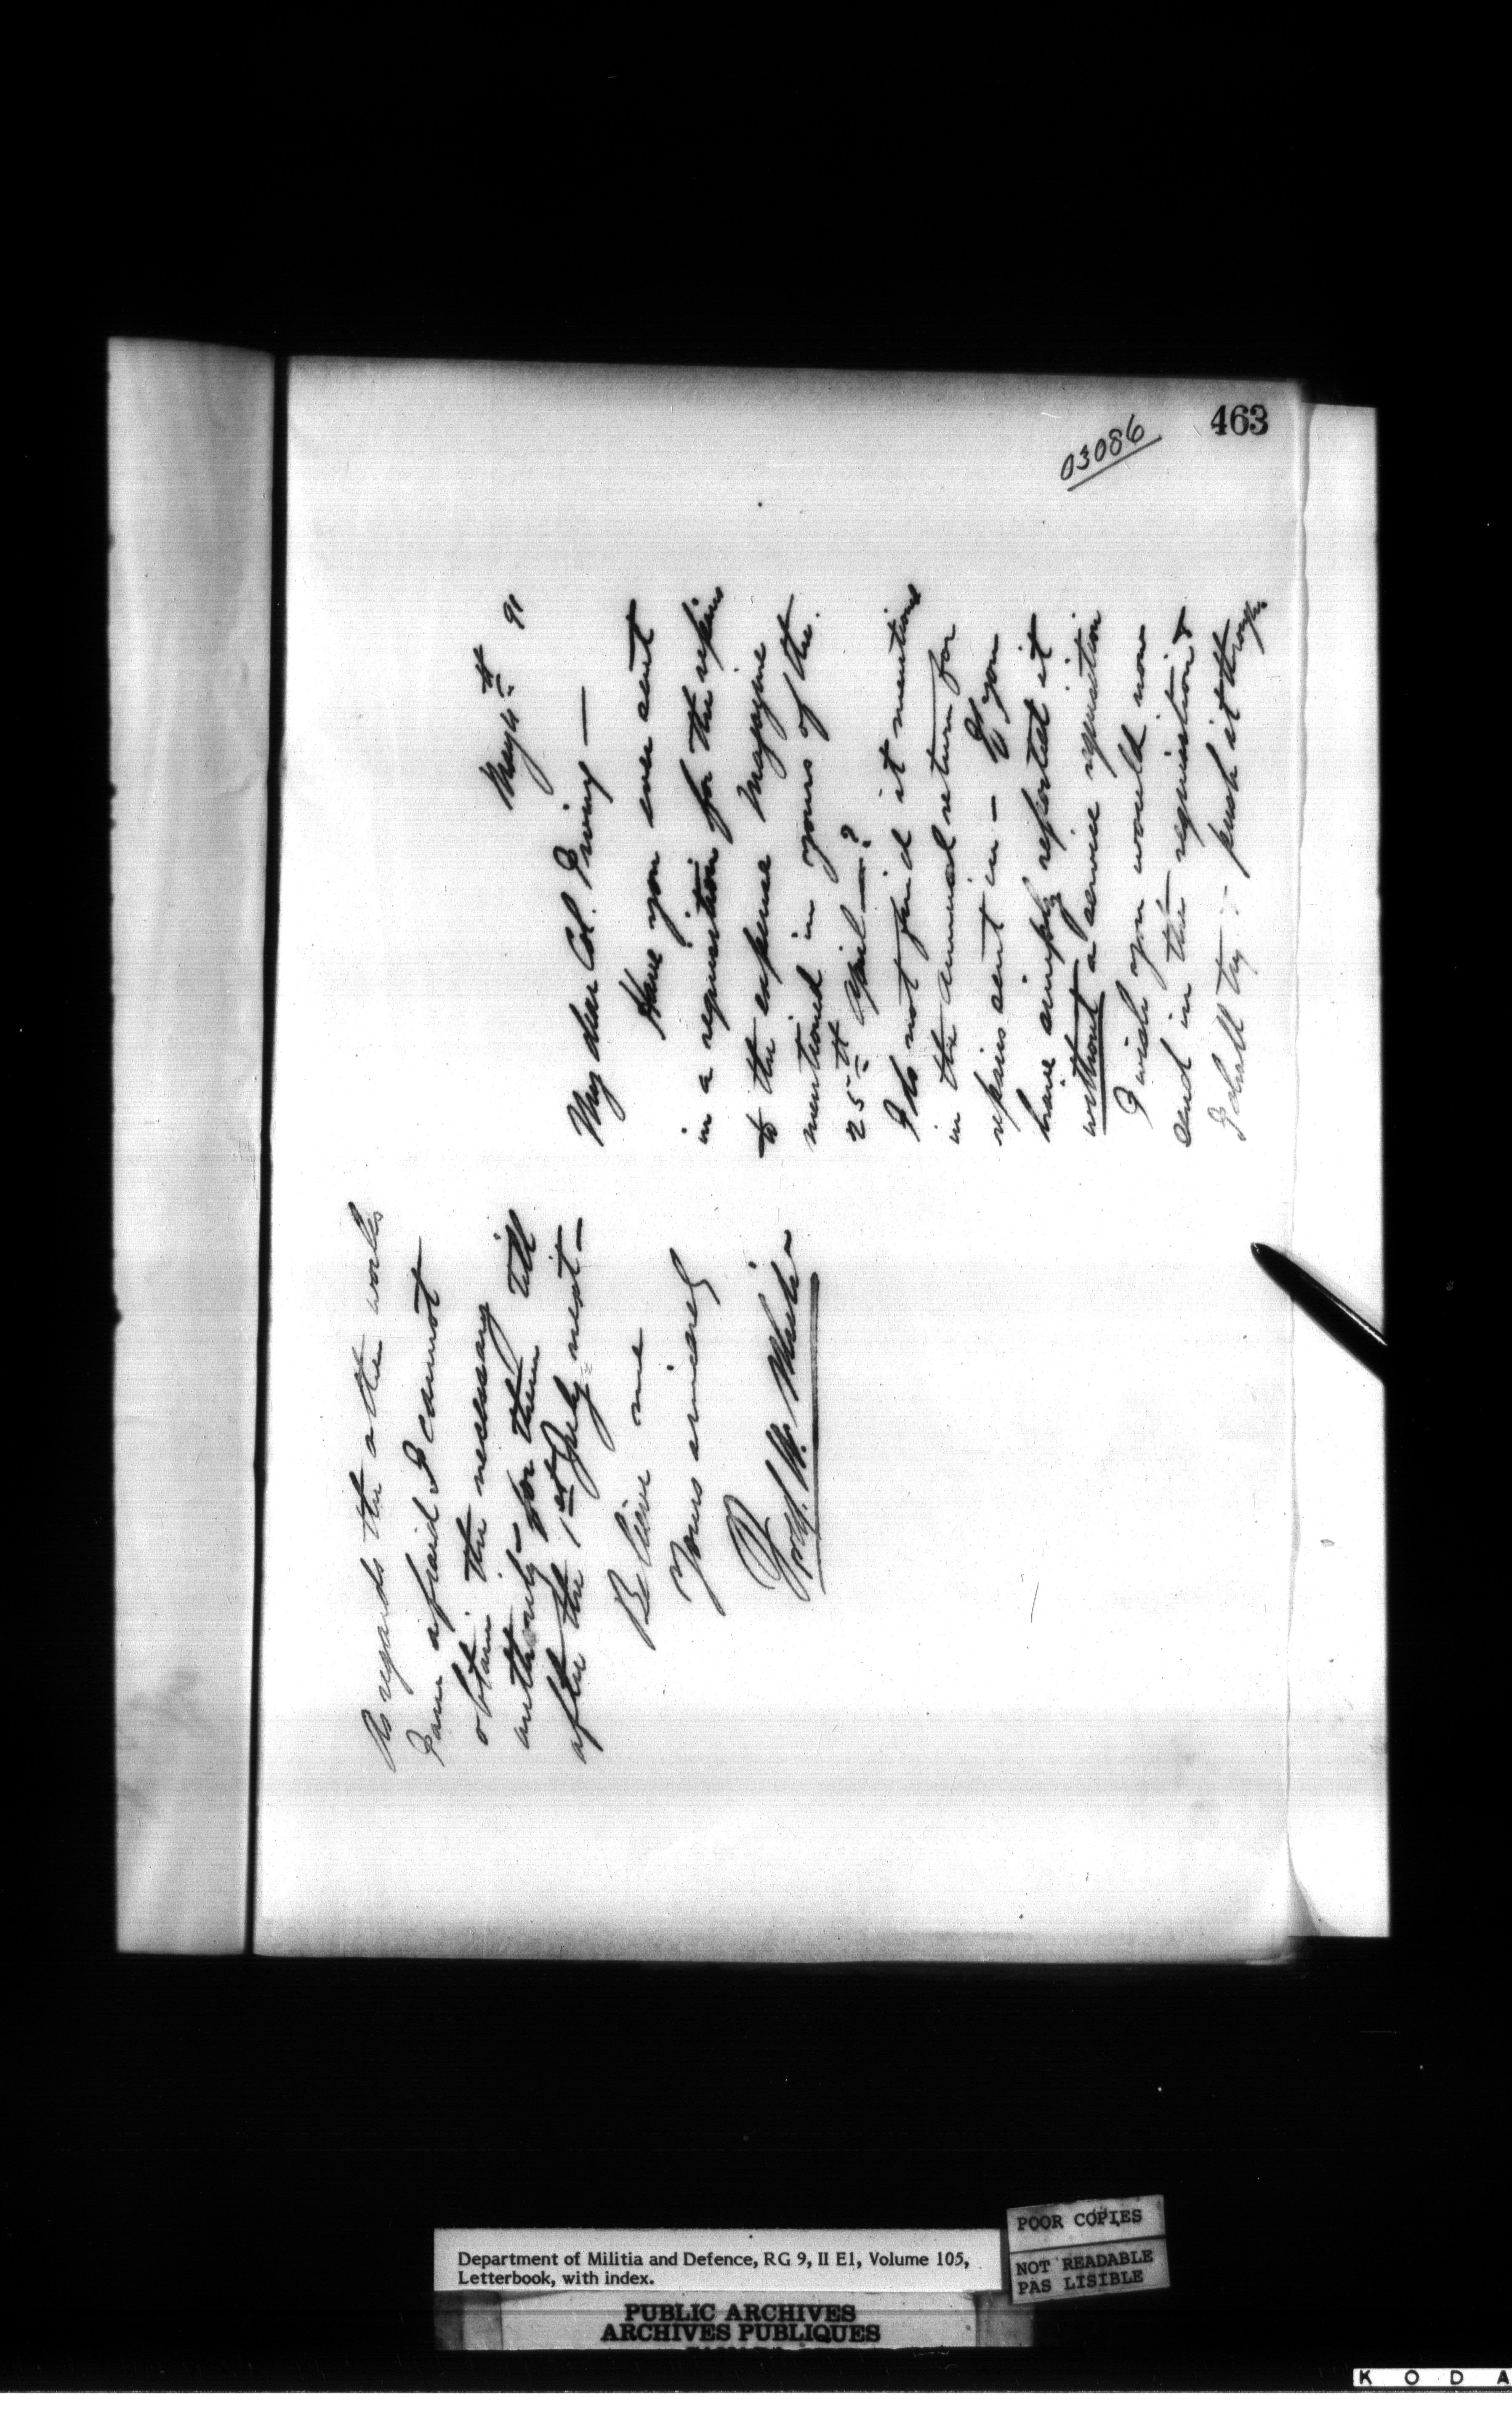 463
03086
May 4th 91
My dear Col. Irving —
Have you ever sent
in a requisition for the repairs
to the expense Magazine
mentioned in yours of the
25th April — ?
I do not find it mentioned
in the annual return for
repairs sent in — If you
have simply reported it
without a service requisition
I wish you would now
send in the requisition &
I shall try & push it through.
As regards the other works
I am afraid I cannot
obtain the necessary
authority for them till
after the 1st July next —
Believe me
Yours sincerely
W. White
Department of Militia and Defence, RG 9, II E1, Volume 105,
Letterbook, with index.
POOR COPIES
NOT READABLE
PAS LISIBLE
PUBLIC ARCHIVES
ARCHIVES PUBLIQUES
KODA